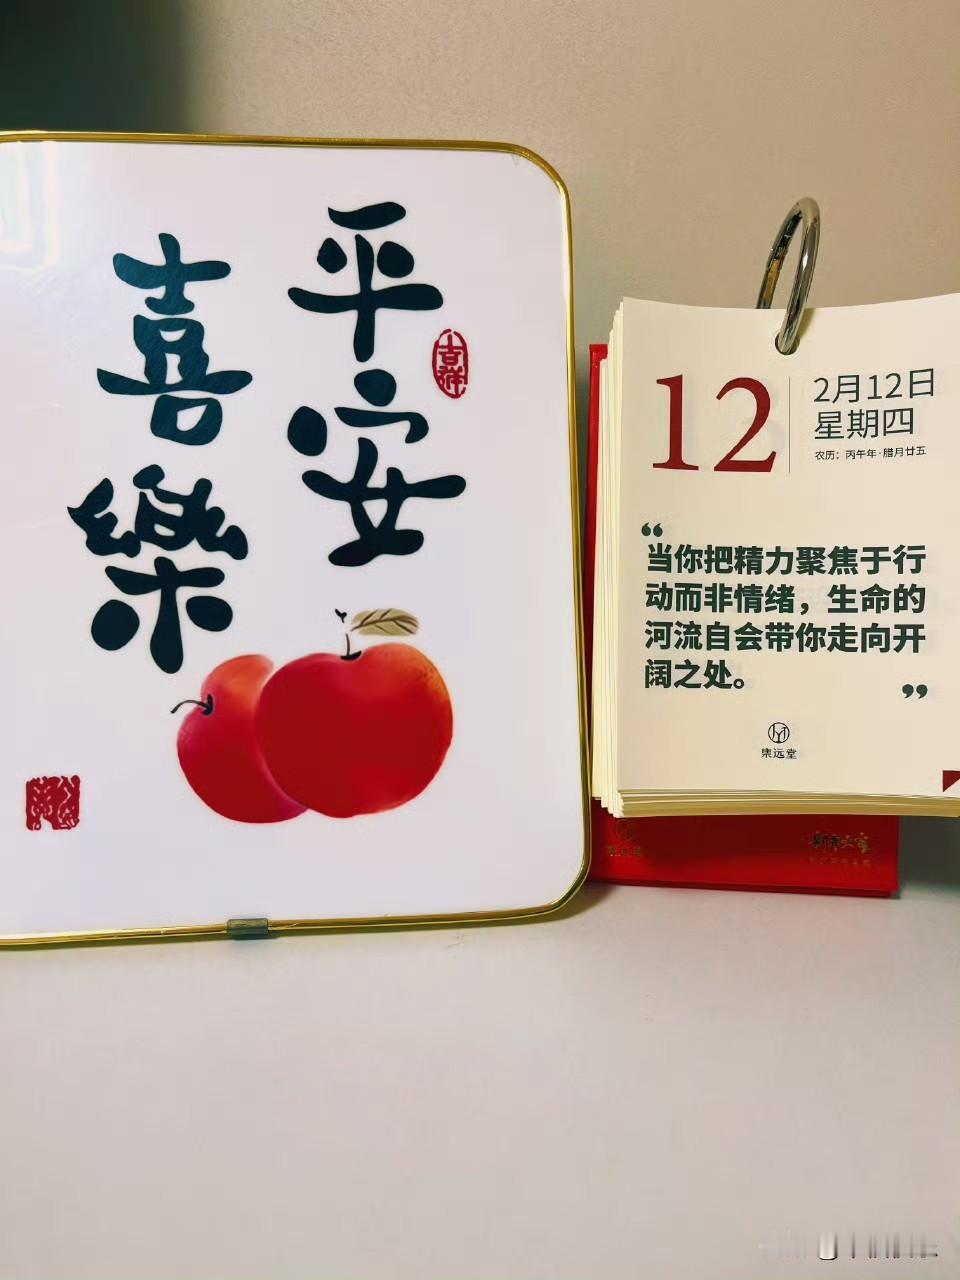 平安
喜樂
吉祥
12
2月12日
星期四
农历：丙午年·腊月廿五
“
当你把精力聚焦于行
动而非情绪，生命的
河流自会带你走向开
阔之处。
”